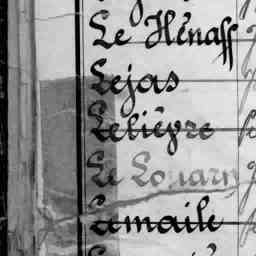 Le Hénaff
Lejas
Lelièvre
Le Louarn
Lemaile